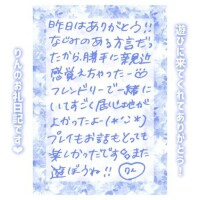 遊びに来てくれてありがとう！
昨日はありがとう!!
なじみのある方言だっ
たから勝手に親近
感覚えちゃった
フレンドリーで一緒に
いてすごく居心地が
よかったよー(*'ω'*)
プレイもお話もとっても
楽しかったです また
遊ぼうね!!
りんのお礼日記です♥